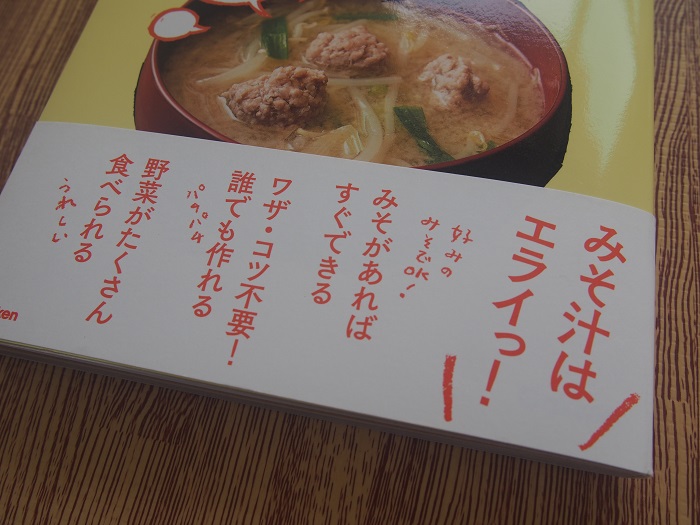 みそ汁は
エライっ!
好みの
みそでOK!
みそがあれば
すぐできる
ワザ・コツ不要!
誰でも作れる
パパッパ
野菜がたくさん
食べられる
うれしい
ken